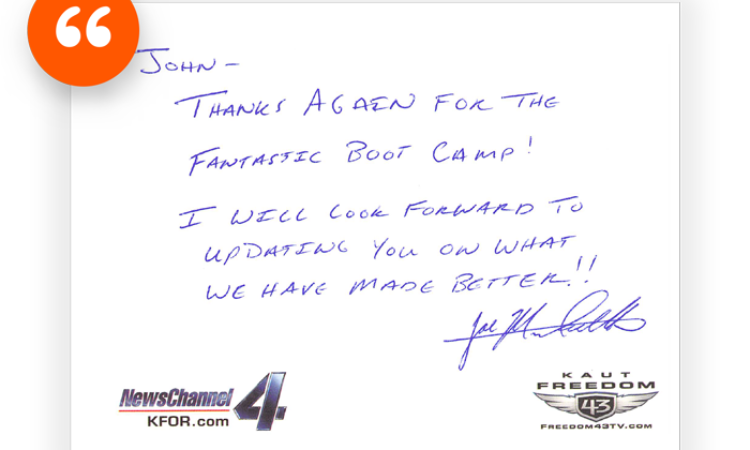 “
JOHN –
THANKS AGAIN FOR THE
FANTASTIC BOOT CAMP!
I WILL LOOK FORWARD TO
UPDATING YOU ON WHAT
WE HAVE MADE BETTER!!
NewsChannel 4
KFOR.com
KAUT
FREEDOM
43
FREEDOM43TV.COM